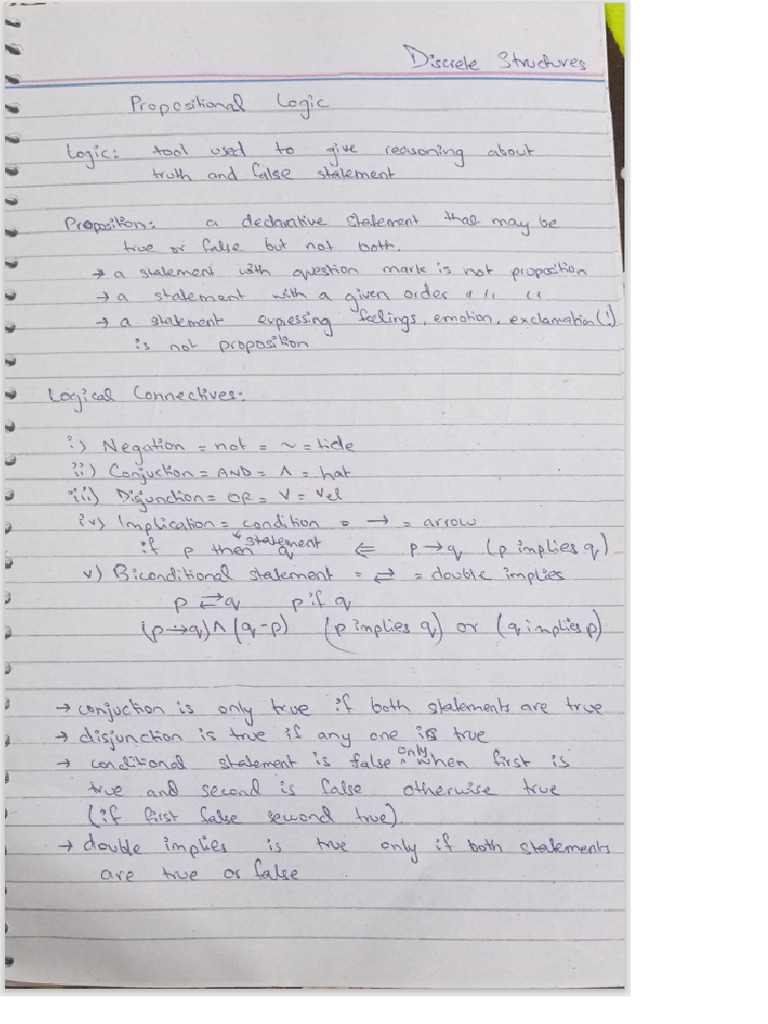 Discrete Structures
Propositional Logic
Logic: tool used to give reasoning about
truth and false statement
Proposition: a declarative statement that may be
true or false but not both.
→ a statement with question mark is not proposition
→ a statement with a given order " " "
→ a statement expressing feelings, emotion, exclamation(!)
is not proposition
Logical Connectives:
i) Negation = not = ~ = tide
ii) Conjuction = AND = ∧ = hat
iii) Disjunction = OR = V = Vel
iv) Implication = condition = → = arrow
statement
if p then q ⇐ p→q (p implies q)
v) Biconditional statement = ⇄ = double implies
p ⇄ q p if q
(p→q)∧(q-p) (p implies q) or (q implies p)
→ conjuction is only true if both statements are true
→ disjunction is true if any one is true
→ conditional statement is false only when first is
true and second is false otherwise true
(if first false sewond true).
→ double implies is true only if both statements
are true or false